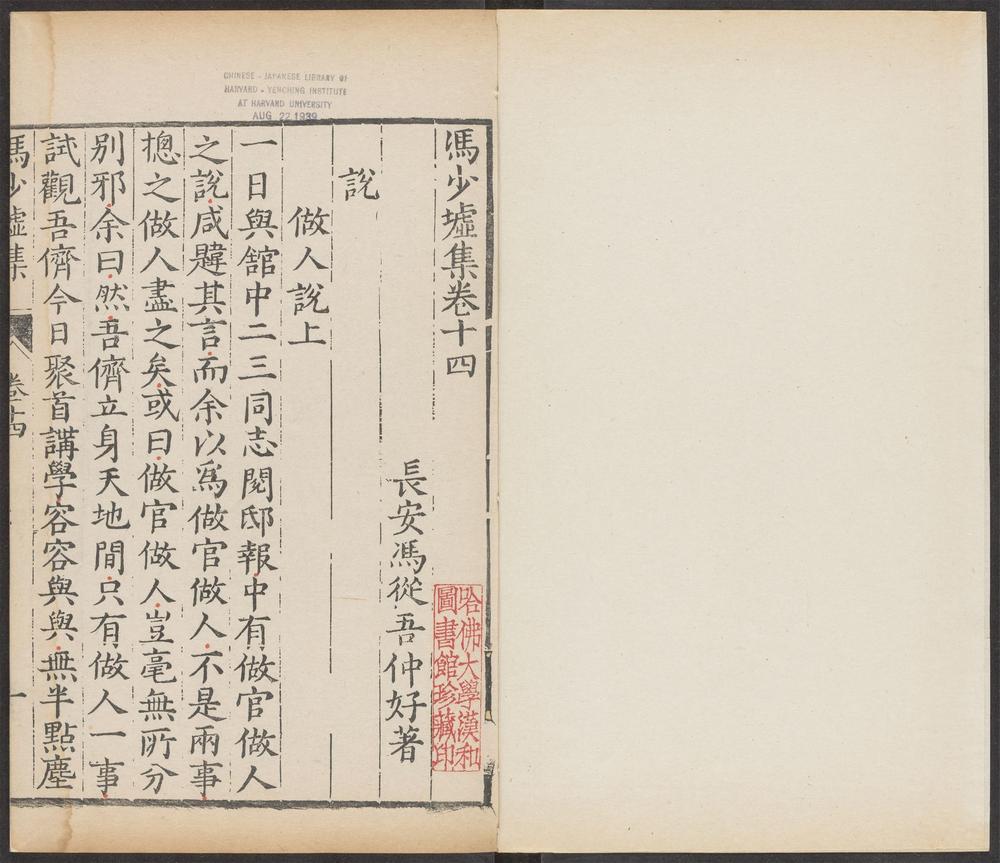 CHINESE - JAPANESE LIBRARY OF
HARVARD - YENCHING INSTITUTE
AT HARVARD UNIVERSITY
AUG 22 1939
馮少墟集卷十四
哈佛大學漢和
圖書館珍藏印
長安馮從吾仲好著
說
做人說上
一日與舘中二三同志閱邸報中有做官做人
之說咸韙其言而余以爲做官做人不是兩事
摠之做人盡之矣或曰做官做人豈毫無所分
别邪余曰然吾儕立身天地間只有做人一事
試觀吾儕今日聚首講學容容與與無半點塵
馮少墟集 卷十四 一